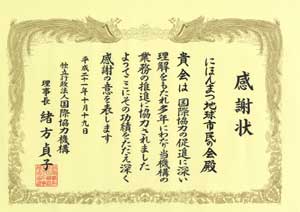 感謝状
にほんまつ地球市民の会殿
貴会は国際協力の促進に深い
理解をもたれ多年にわたり当機構の
業務の推進に協力されました
よってここにその功績をたたえ深く
感謝の意を表します
平成二十一年十月十九日
独立行政法人国際協力機構
理事長 緒方貞子